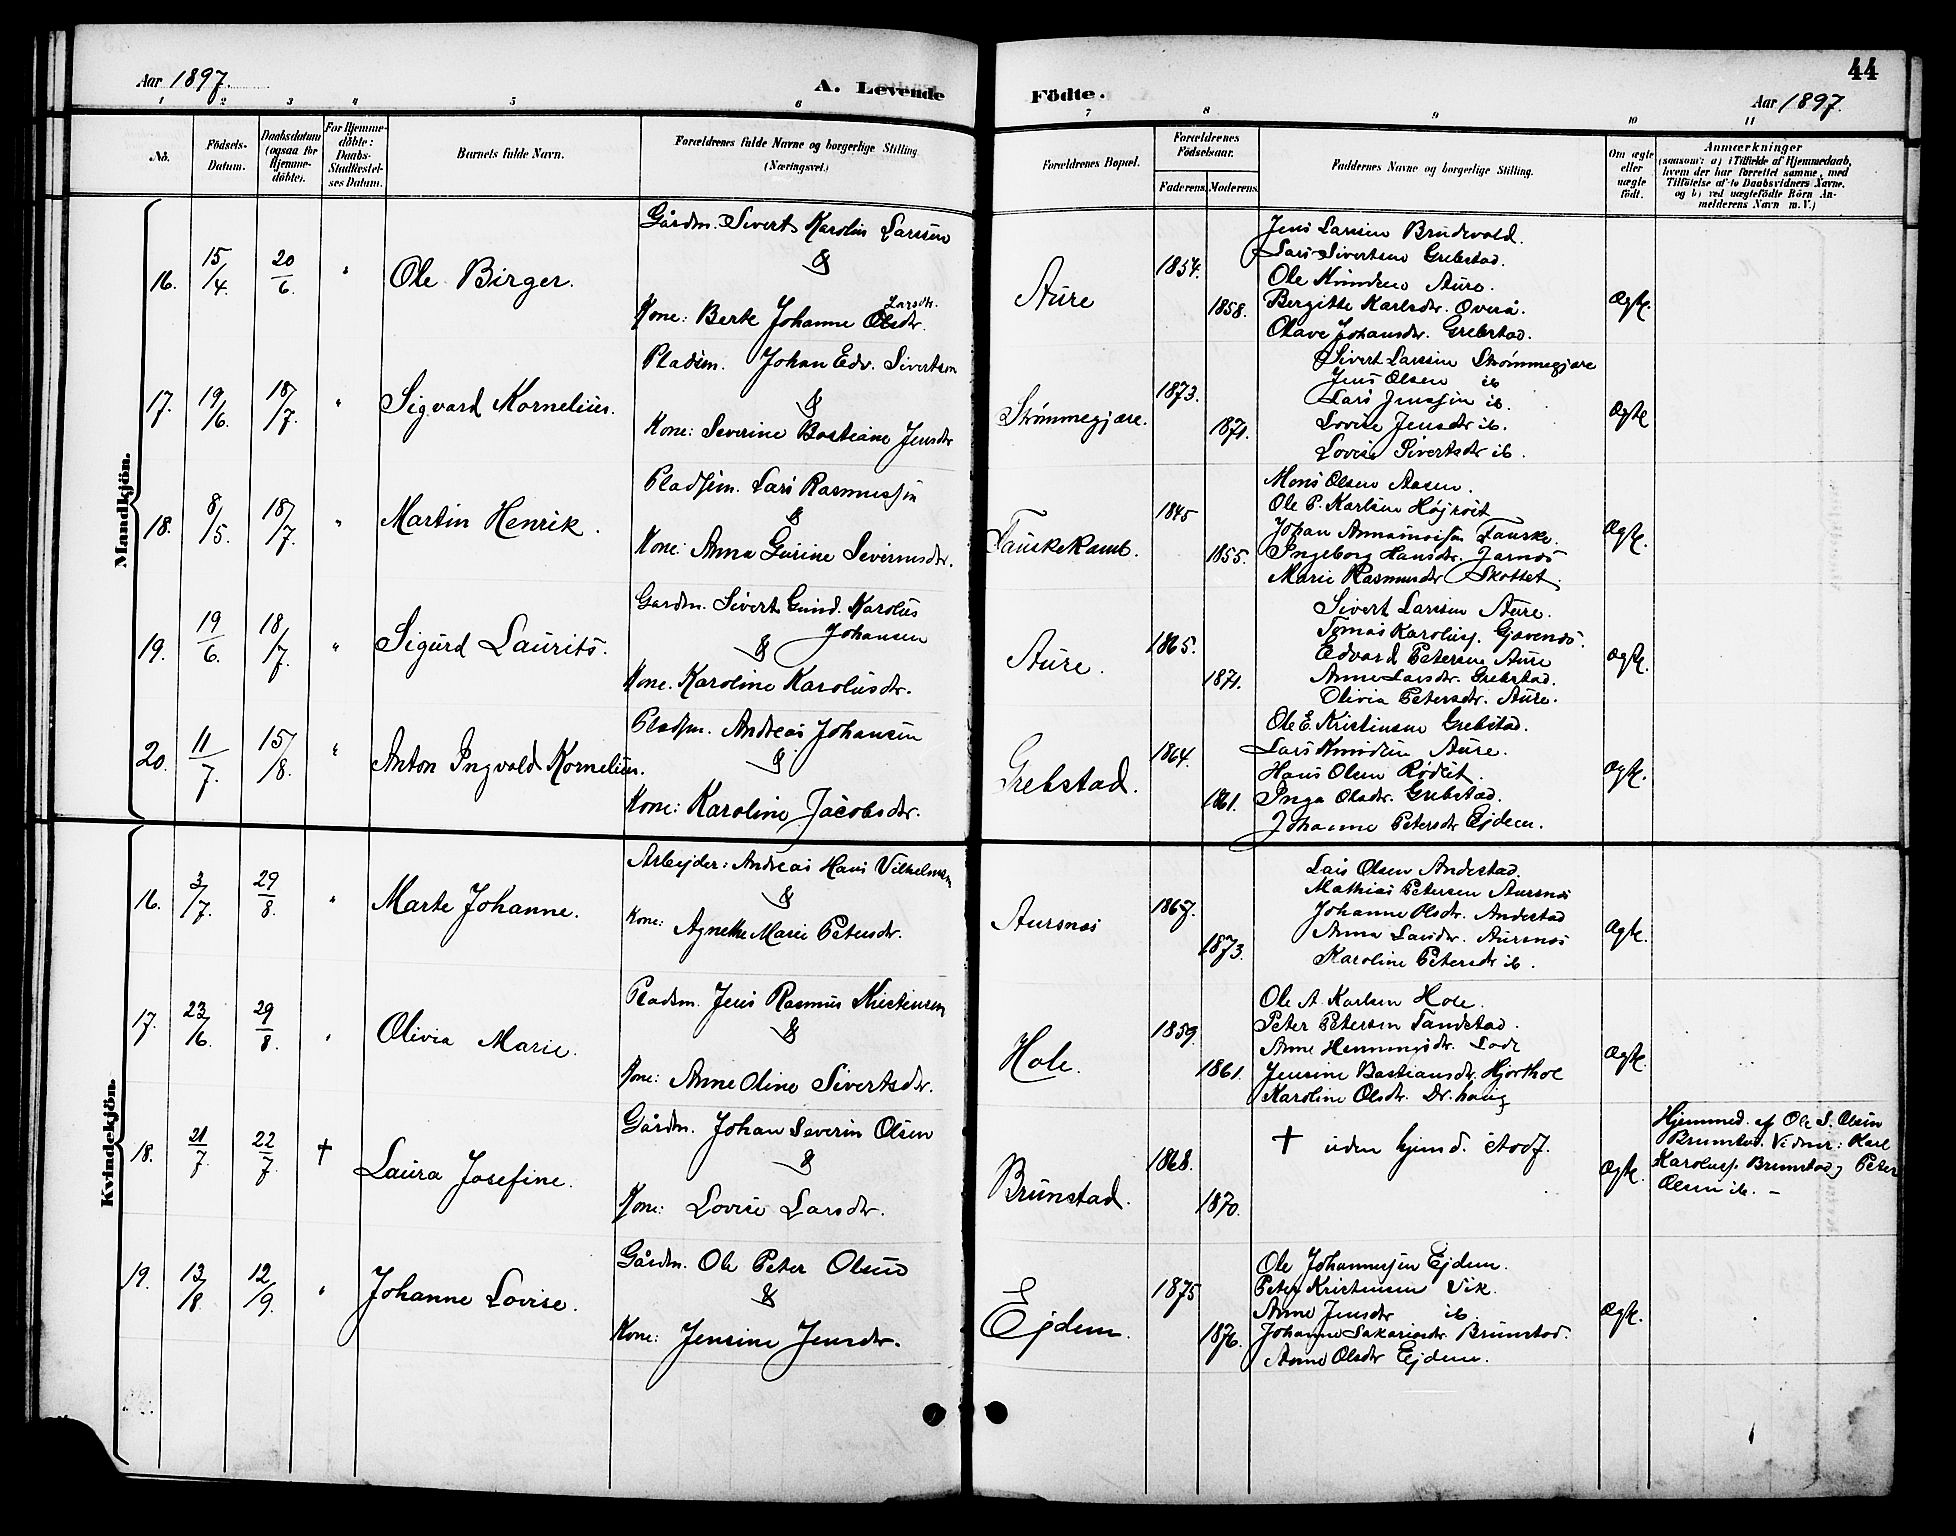 Aar 1897.
A. Levende
Födte.
Aar 1897.
44
1 2 3 4 5 6 7 8 9 10 11
No.
Födsels-
Datum.
Daabsdatum
(ogsaa for
Hjemme-
döbte).
For Hjemme-
döbte:
Daabs-
Stadfæstel-
ses Datum.
Barnets fulde Navn.
Forældrenes fulde Navne og borgerlige Stilling
(Næringsvei.)
Forældrenes Bopæl.
Forældrenes
Födselsaar.
Faderens.
Moderens.
Faddernes Navne og borgerlige Stilling.
Om ægte
eller
uægte
födt.
Anmærkninger
(saasom: a) i Tilfælde af Hjemmedaab,
hvem der har forrettet samme, med
Tilföielse af to Daabsvidners Navne,
og b) ved uægtefödte Börn An-
melderens Navn m. V.)
Mandkjön.
16.
15/4
20/6
"
Ole Birger.
Gårdm. Sivert Karolin Larssen
&
Kone: Berte Johanne Olsdtr.
Larsdtr.
Aure
1854.
1858.
Jens Larssen Brudevold.
Lars Sivertsen Grebstad.
Ole Knudsen Aure.
Bergitte Karlsdtr. Overå.
Olave Johansdtr. Grebstad.
Ægte.
17.
19/6.
18/7.
"
Sigvard Kornelius.
Pladsm. Johan Edv. Sivertsen
&
Kone: Severine Bastiane Jensdtr
Strømmegjære.
1873.
1871.
Sivert Larssen Strømmegjære
Jens Olsen ib
Lars Jenssen ib.
Lovise Jensdtr ib.
Lovise Sivertsdtr ib.
Ægte
18.
8/5.
18/7.
"
Martin Henrik.
Pladsem. Lars Rasmussen
&
Kone: Anna Gurine Severinsdtr.
Fauskekamb.
1845
1855.
Mons Olsen Aasen.
Ole P. Karlsen
Johan Fauske.
Ingeborg Hansdtr. Jarnes
Marie Rasmusdtr Skottet.
Ægte.
19.
19/6.
18/7.
"
Sigurd Laurits.
Gardm. Sivert Gund. Karolus
Johansen
&
Kone. Karoline Karolusdtr.
Aure.
1865.
1871.
Sivert Larssen Aure.
Tomas Karolusf. Gjævenes.
Edvard Petersen Aure
Anne Larsdtr. Grebstad.
Olivia Petersdtr. Aure.
Ægte.
20.
11/7.
15/8.
"
Anton Ingvald Kornelius.
Pladsm. Andreas Johansen
&
Kone: Karoline Jacobsdtr.
Grebstad.
1864.
1861.
Ole E. Kristensen Grebstad.
Lars Knudsen Aure.
Hans Olsen Rødset.
Inga Olsdtr. Grebstad.
Johanne Petersdtr Ejdem.
Ægte.
Kvindekjön.
16.
3/7.
29/8.
"
Marte Johanne.
Arbejder: Andreas Hans Vilhelmsen
&
Kone: Agnethe Marie Petersdtr.
Aursnes
1867.
1873.
Lars Olsen Andestad.
Mathias Petersen Aursnes
Johanne Olsdtr. Andestad
Anna Larsdtr. Aursnes
Karoline Petersdtr ib.
Ægte.
17.
23/6.
29/8.
"
Olivia Marie.
Pladsm. Jens Rasmus Kristensen
&
Kone: Anne Oline Sivertsdtr.
Hole.
1859.
1861.
Ole A. Karlsen Hole.
Peter Petersen Tandstad.
Anne Hemmingsdtr. Lade
Jensine Bastiansdtr. Hjorthol
Karoline Olsdtr. Dr.haug
Ægte.
18.
21/7.
22/7.
†
Laura Josefine.
Gårdm. Johan Severin Olsen
&
Kone: Lovise Larsdtr.
Brunstad.
1868.
1870.
† uden hjemd. Stadf.
Ægte.
Hjemmed. af Ole S. Olsen
Brunstad. Vidner: Karl
Karolusf. Brunstad og Peter
Olsen ib. –
19.
13/8.
12/9.
"
Johanne Lovise.
Gårdm. Ole Peter Olsen
&
Kone: Jensine Jensdtr.
Ejdem.
1875
1876.
Ole Johannessen Ejdem.
Peter Kristensen Vik.
Anne Jensdtr ib
Johanne Sakariasdtr. Brunstad.
Anne Olsdtr Ejdem.
Ægte.